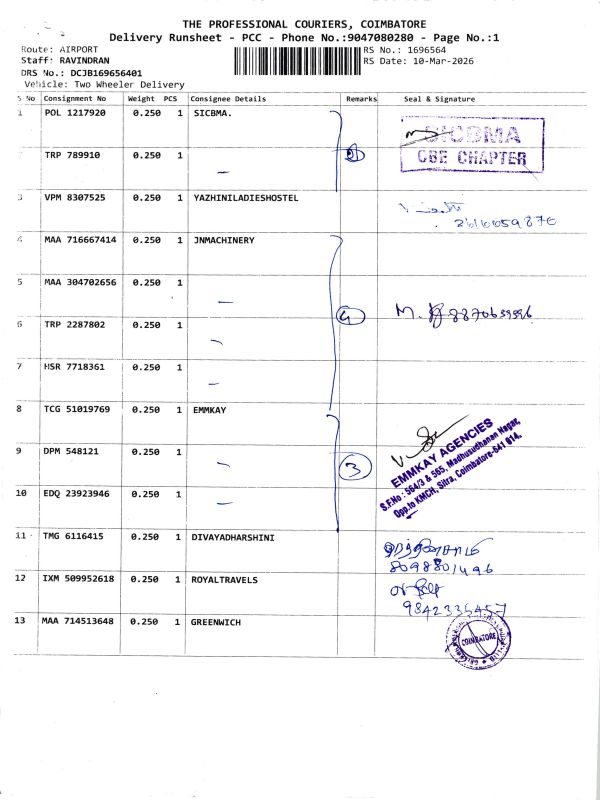 THE PROFESSIONAL COURIERS, COIMBATORE
Delivery Runsheet - PCC - Phone No.:9047080280 - Page No.:1
Route: AIRPORT RS No.: 1696564
Staff: RAVINDRAN RS Date: 10-Mar-2026
DRS No.: DCJB169656401
Vehicle: Two Wheeler Delivery
S No Consignment No Weight PCS Consignee Details Remarks Seal & Signature
1 POL 1217920 0.250 1 SICBMA.
SICBMA
CBE CHAPTER
TRP 789910 0.250 1 —
3 VPM 8307525 0.250 1 YAZHINILADIESHOSTEL
4 MAA 716667414 0.250 1 JNMACHINERY
5 MAA 304702656 0.250 1 —
6 TRP 2287802 0.250 1 — 4 M.
7 HSR 7718361 0.250 1 —
8 TCG 51019769 0.250 1 EMMKAY
9 DPM 548121 0.250 1 — 3
EMMKAY AGENCIES
S.F.No : 564/3 & 565, Madhusudhanan Nagar,
Opp.to KMCH, Sitra, Coimbatore-641 014.
10 EDQ 23923946 0.250 1 —
11 TMG 6116415 0.250 1 DIVAYADHARSHINI
8098801496
12 IXM 509952618 0.250 1 ROYALTRAVELS
9842336457
13 MAA 714513648 0.250 1 GREENWICH
COIMBATORE